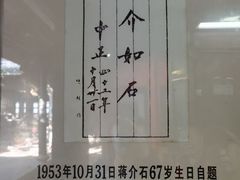 介如石
中正
四十二年
十月卅一日
1953年10月31日蒋介石67岁生日自题